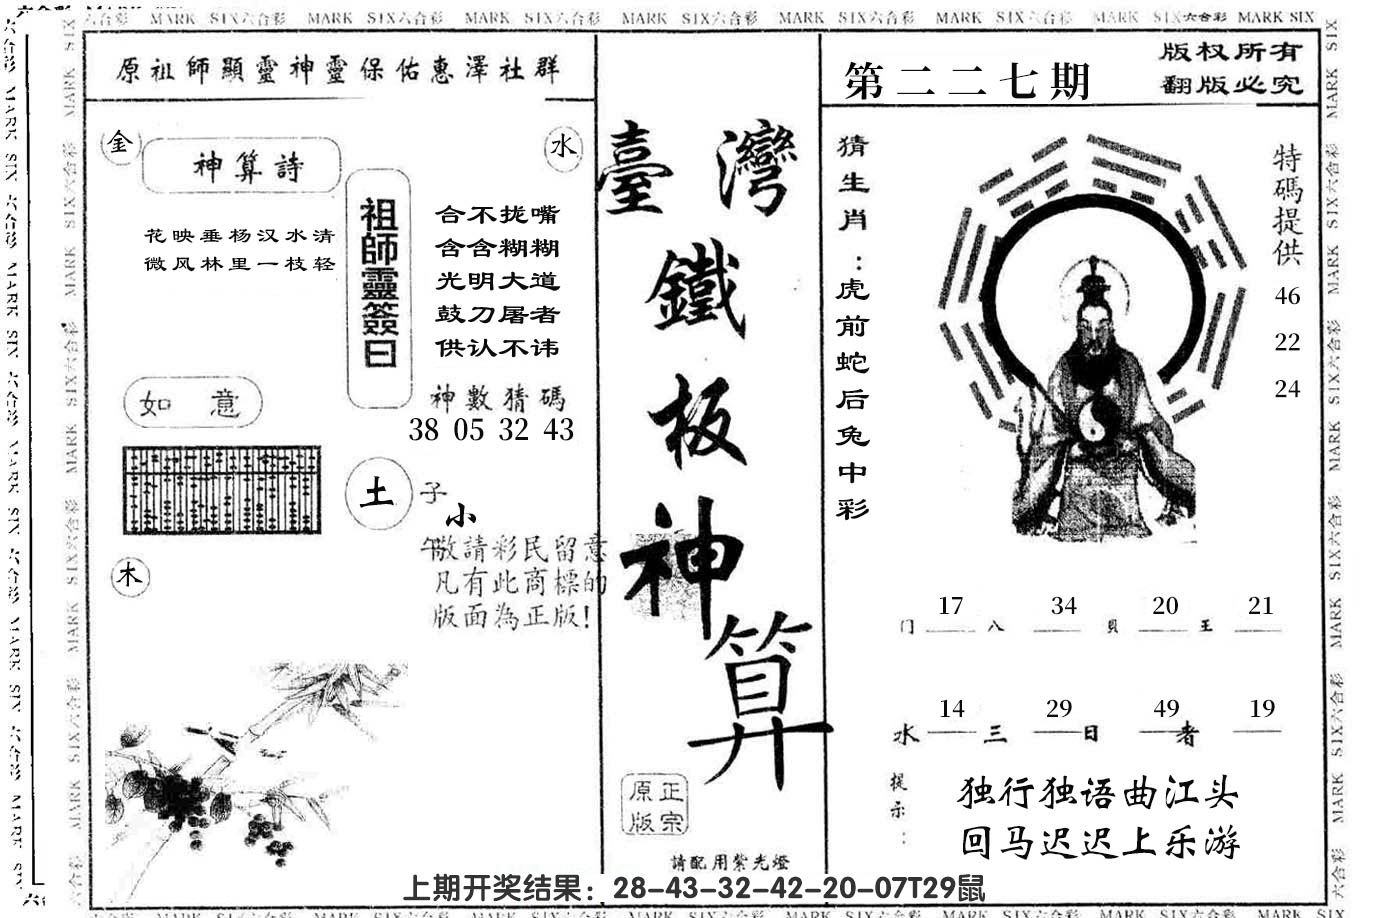 MARK SIX六合彩 MARK SIX六合彩 MARK SIX六合彩 MARK SIX六合彩 MARK SIX六合彩 MARK SIX六合彩 MARK SIX六合彩 MARK SIX
原祖師顯靈神靈保佑惠澤社群
金
水
神算詩
花映垂杨汉水清
微风林里一枝轻
祖師靈簽曰
合不拢嘴
含含糊糊
光明大道
鼓刀屠者
供认不讳
神數猜碼
38 05 32 43
如 意
土
子
小
午
敬請彩民留意
凡有此商標的
版面為正版!
木
臺灣
鐵板神算
正宗
原版
請配用紫光燈
第二二七期
版权所有
翻版必究
猜生肖:虎前蛇后兔中彩
特碼提供
46
22
24
门 17 八 34 貝 20 王 21
水 14 三 29 日 49 者 19
提示:
独行独语曲江头
回马迟迟上乐游
上期开奖结果：28-43-32-42-20-07T29鼠